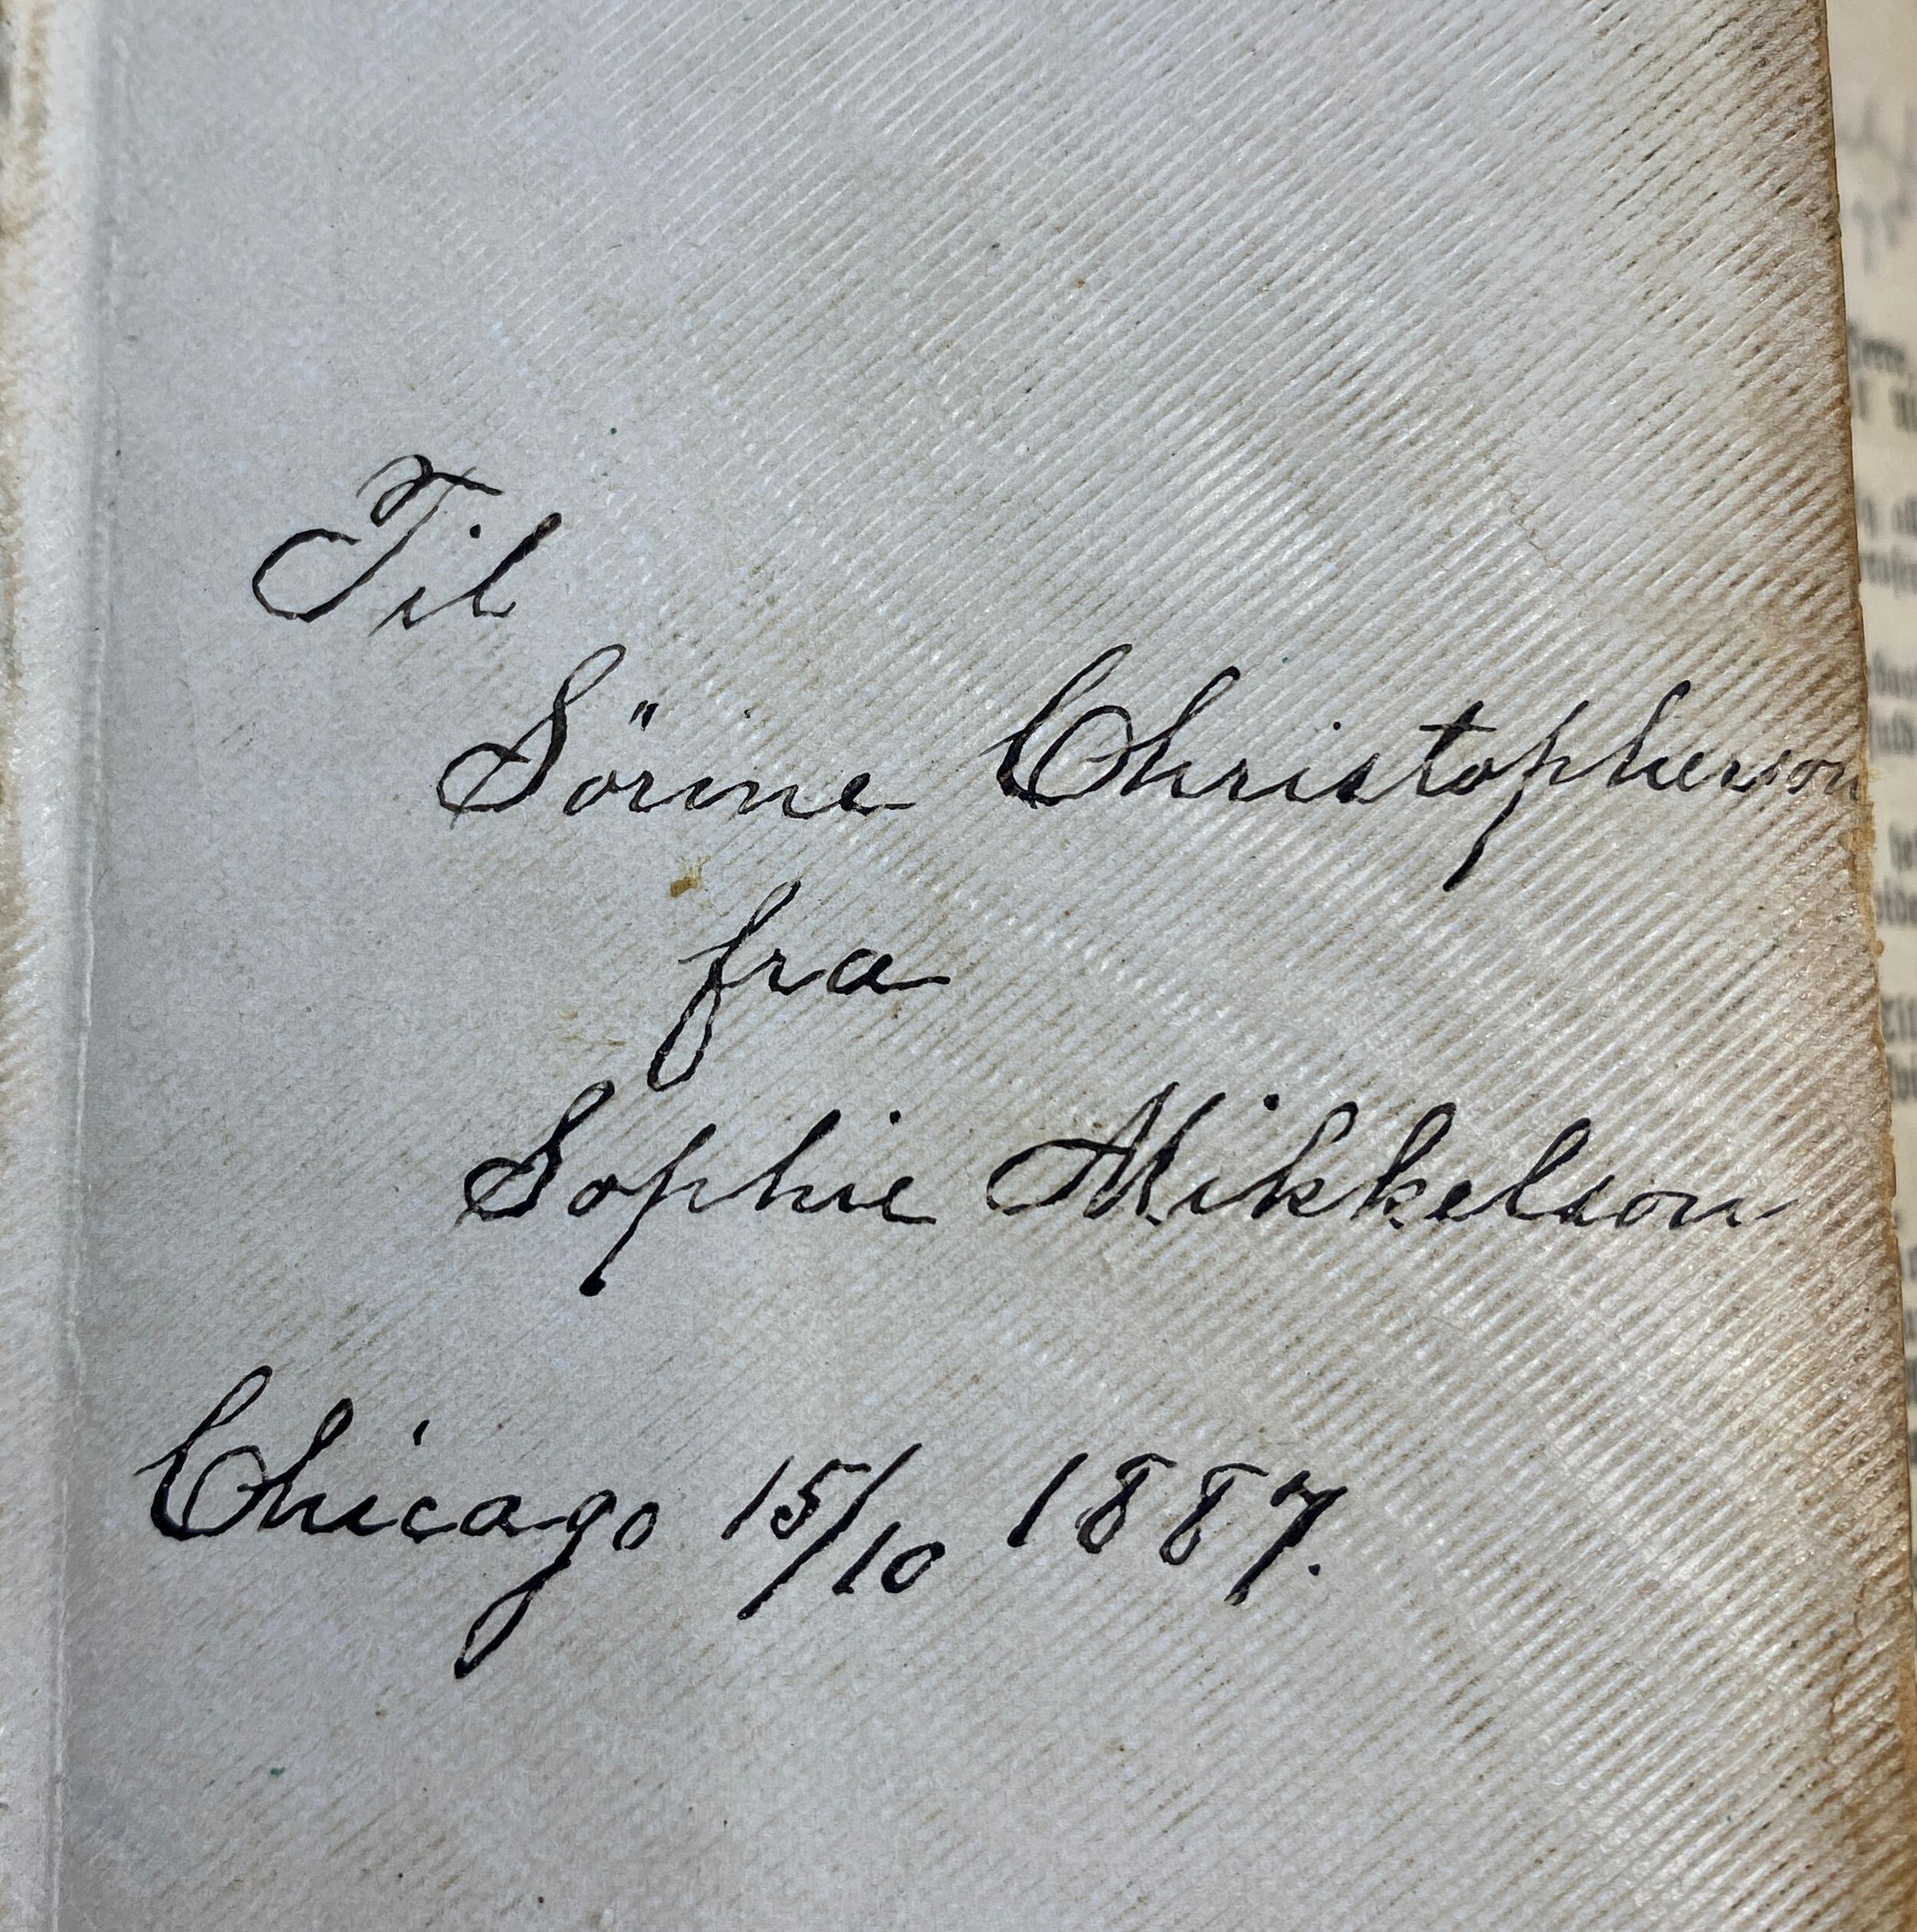 Til
Sörine Christopherson
fra
Sophie Mikkelson
Chicago 15/10 1887.